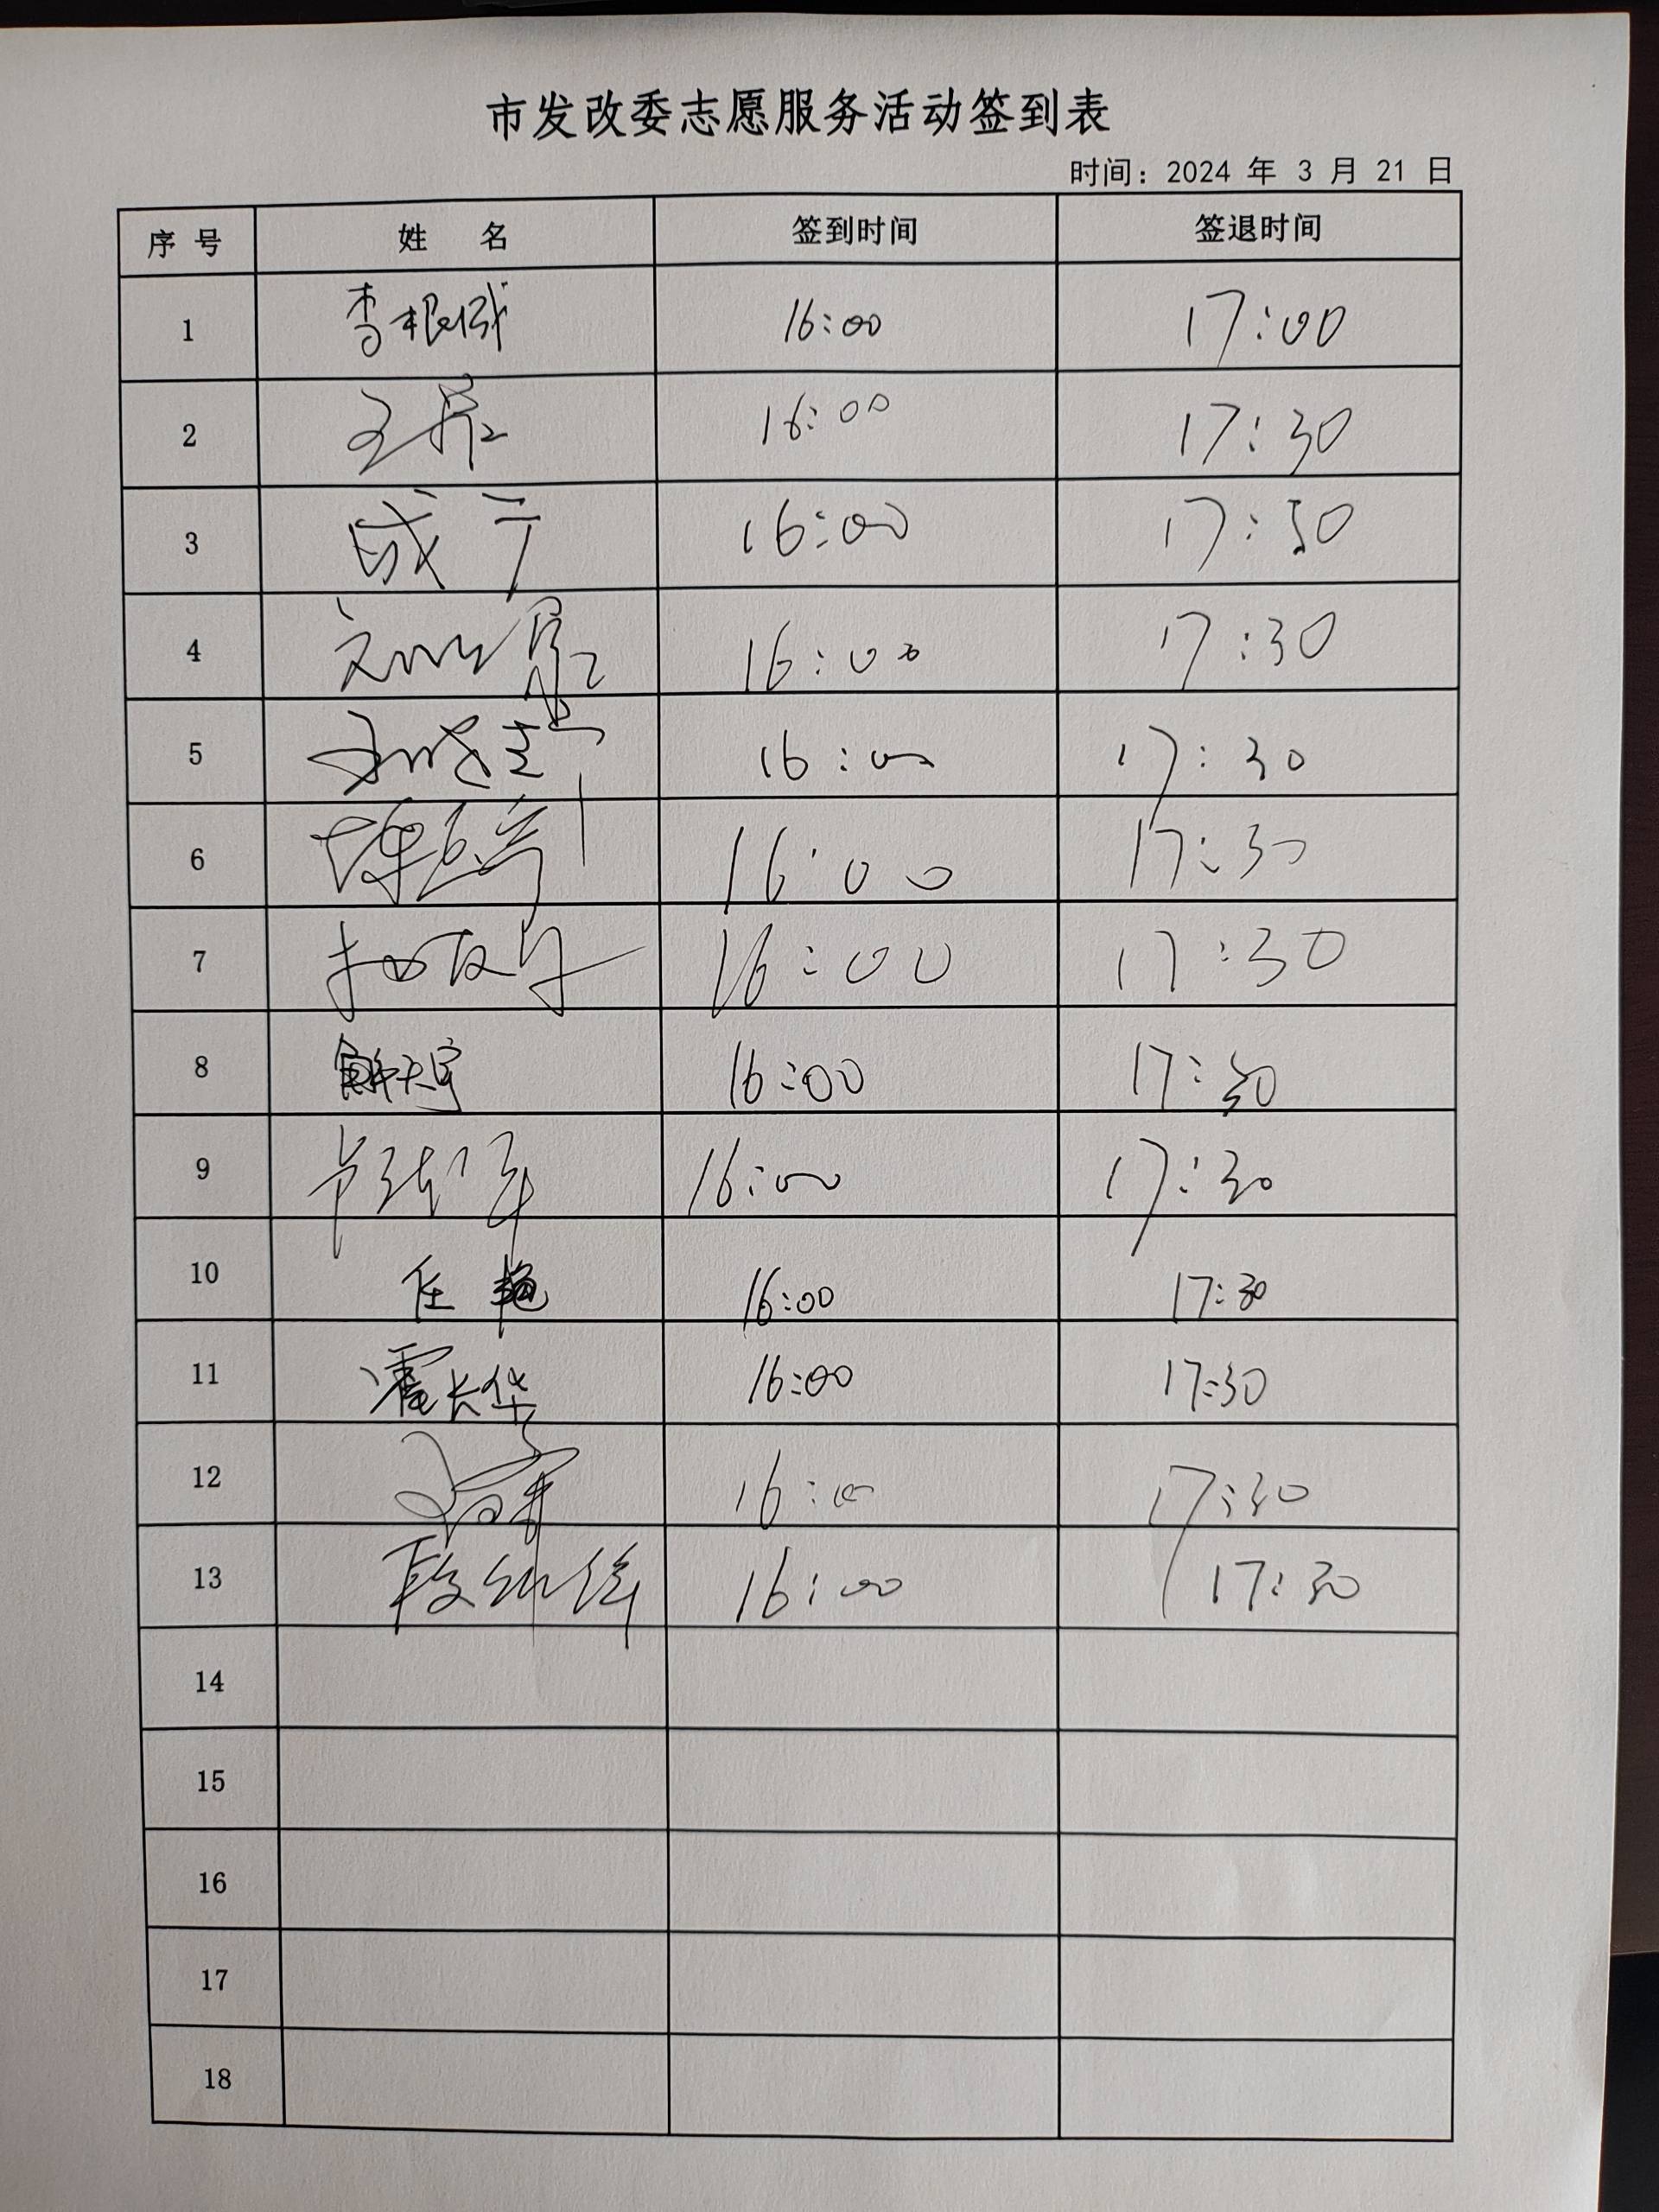 市发改委志愿服务活动签到表
时间：2024 年 3 月 21 日
序 号 姓 名 签到时间 签退时间
1 李根成 16:00 17:00
2 王 16:00 17:30
3 成 16:00 17:30
4 16:00 17:30
5 16:00 17:30
6 16:00 17:30
7 16:00 17:30
8 解天宇 16:00 17:30
9 16:00 17:30
10 任艳 16:00 17:30
11 霍长华 16:00 17:30
12 16:00 17:30
13 段 16:00 17:30
14
15
16
17
18